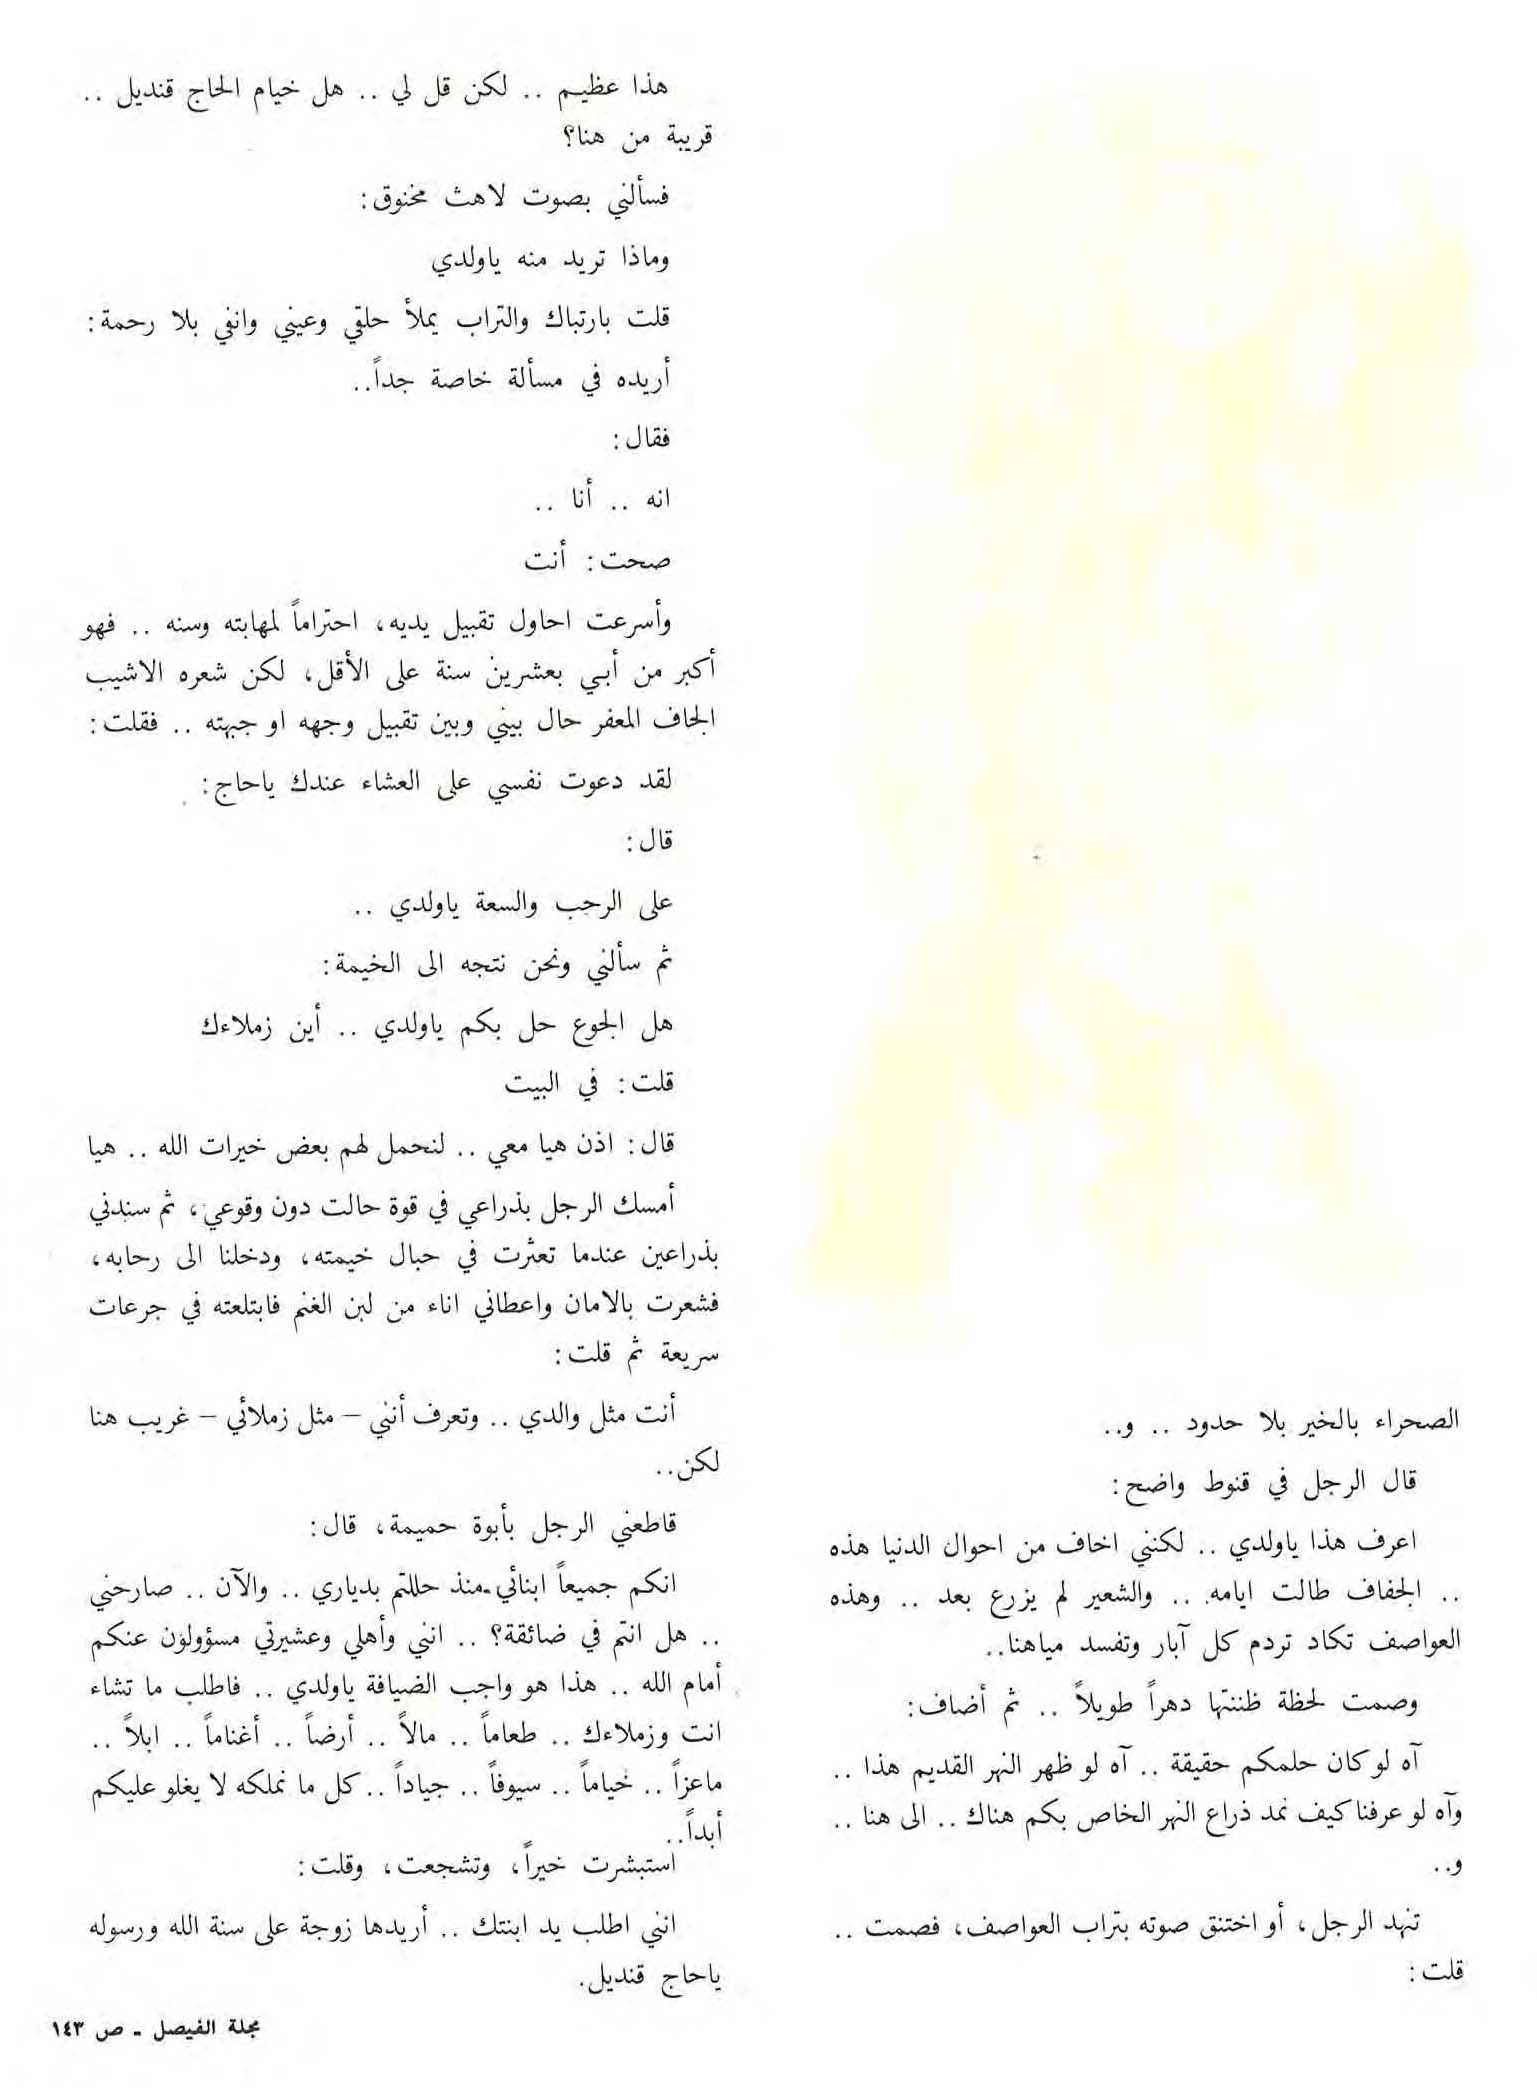 الصحراء بالخير بلا حدود .. و..
قال الرجل في قنوط واضح:
اعرف هذا ياولدي .. لكنني اخاف من احوال الدنيا هذه
.. الجفاف طالت ايامه .. والشعير لم يزرع بعد .. وهذه
العواصف تكاد تردم كل آبار وتفسد مياهنا..
وصمت لحظة ظننتها دهراً طويلاً .. ثم أضاف:
آه لو كان حلمكم حقيقة .. آه لو ظهر النهر القديم هذا ..
وآه لو عرفنا كيف نمد ذراع النهر الخاص بكم هناك .. الى هنا ..
و..
تنهد الرجل، أو اختنق صوته بتراب العواصف، فصمت ..
قلت:
هذا عظيم .. لكن قل لي .. هل خيام الحاج قنديل ..
قريبة من هنا؟
فسألني بصوت لاهث مخنوق:
وماذا تريد منه ياولدي
قلت بارتباك والتراب يملأ حلقي وعيني وانفي بلا رحمة:
أريده في مسألة خاصة جداً..
فقال:
انه .. أنا ..
صحت: أنت
وأسرعت احاول تقبيل يديه، احتراماً لمهابته وسنه .. فهو
أكبر من أبي بعشرين سنة على الأقل، لكن شعره الاشيب
الجاف المعفر حال بيني وبين تقبيل وجهه او جبهته .. فقلت:
لقد دعوت نفسي على العشاء عندك ياحاج:
قال:
على الرحب والسعة ياولدي ..
ثم سألني ونحن نتجه الى الخيمة:
هل الجوع حل بكم ياولدي .. أين زملاءك
قلت: في البيت
قال: اذن هيا معي .. لنحمل لهم بعض خيرات الله .. هيا
أمسك الرجل بذراعي في قوة حالت دون وقوعي، ثم سندني
بذراعين عندما تعثرت في حبال خيمته، ودخلنا الى رحابه،
فشعرت بالامان واعطاني اناء من لبن الغنم فابتلعته في جرعات
سريعة ثم قلت:
أنت مثل والدي .. وتعرف أنني - مثل زملائي - غريب هنا
لكن..
قاطعني الرجل بأبوة حميمة، قال:
انكم جميعاً ابنائي منذ حللتم بدياري .. والآن .. صارحني
.. هل انتم في ضائقة؟ .. انني وأهلي وعشيرتي مسؤولون عنكم
أمام الله .. هذا هو واجب الضيافة ياولدي .. فاطلب ما تشاء
انت وزملاءك .. طعاماً .. مالاً .. أرضاً .. أغناماً .. ابلاً ..
ماعزاً .. خياماً .. سيوفاً .. جياداً .. كل ما نملكه لا يغلو عليكم
أبداً..
استبشرت خيراً، وتشجعت، وقلت:
انني اطلب يد ابنتك .. أريدها زوجة على سنة الله ورسوله
ياحاج قنديل.
مجلة الفيصل - ص ١٤٣